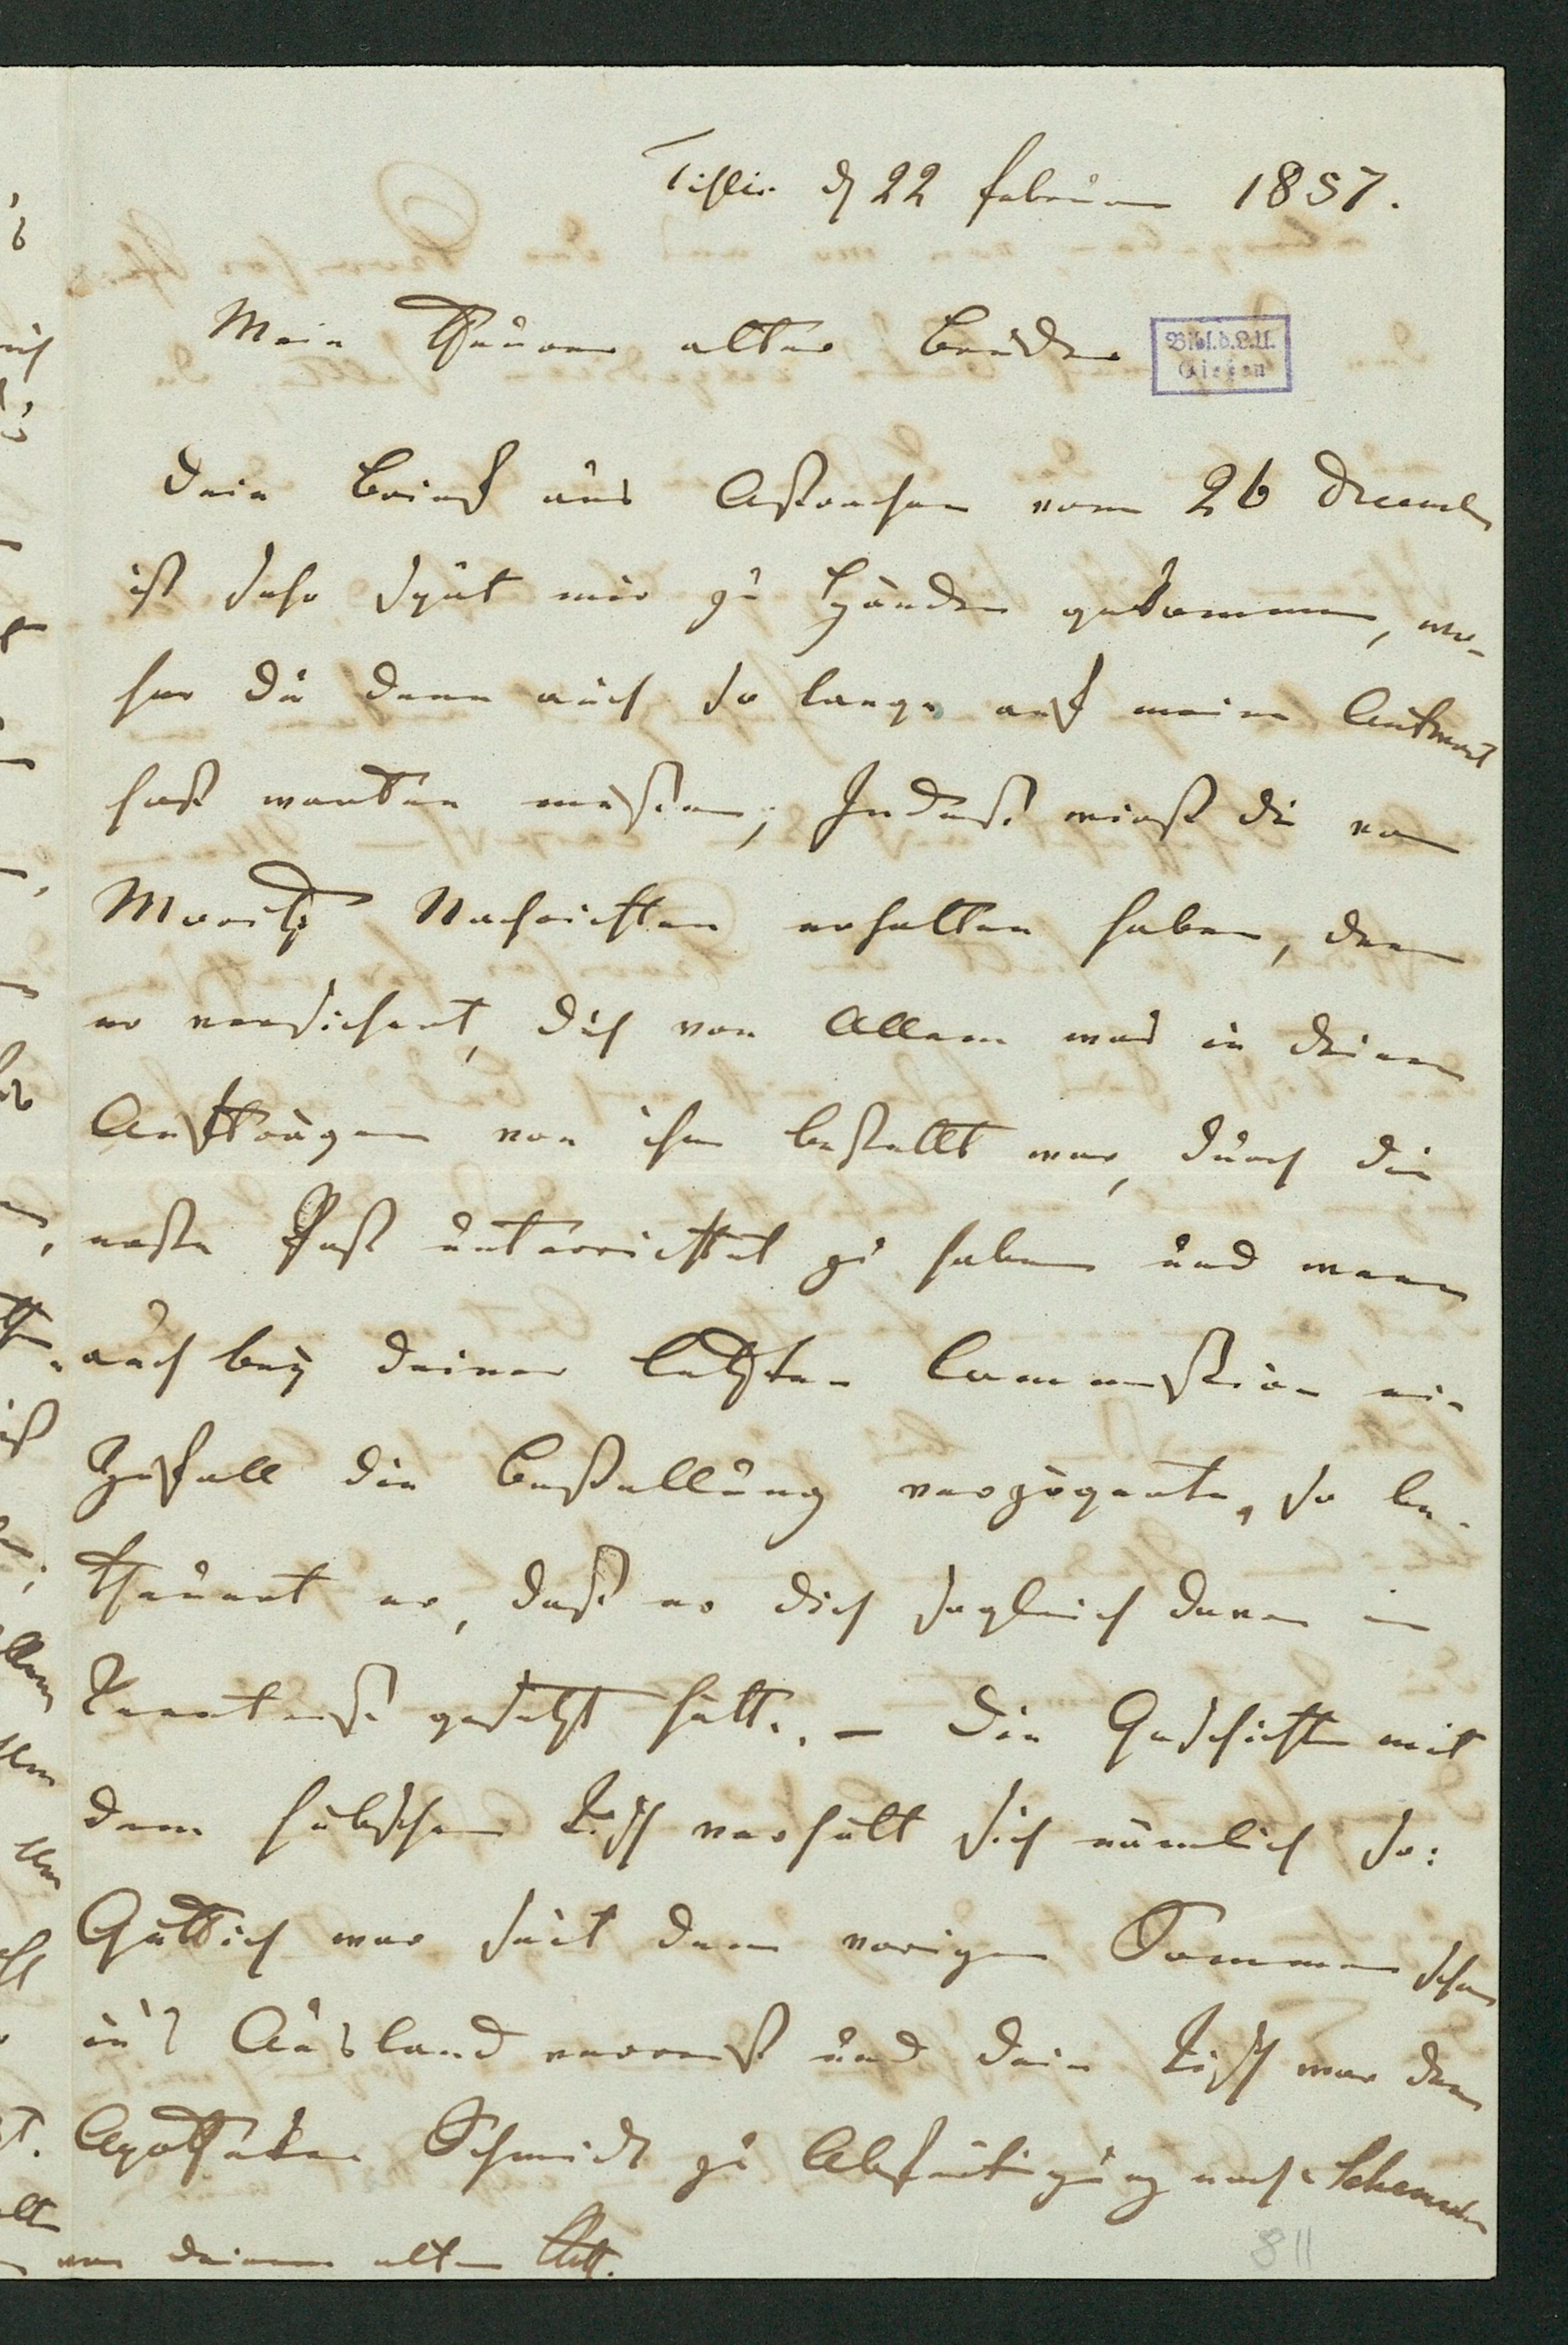 Tiflis d 22 Februar 1857.
Mein theurer alter Bruder
Bibl.d.L.U.
Giesen
Dein Brief aus Astrachan vom 26 Decemb
ist sehr spät mir zu Händen gekommen, wo-
her du denn auch so lange auf meine Antwort
hast warten müßen; Indeß wirst du von
Moritz Nachrichten erhalten haben, denn
er versichert, dich von Allem was in deinen
Aufträgen von ihm bestellt war, durch die
erste Post unterrichtet zu haben und wenn
auch bey deiner letzten Commission ein
Zufall die Bestellung verzögerte, so be-
theuert er, daß er dich sogleich davon in
Kenntniß gesetzt hätte. – Die Geschichte mit
dem hübschen Tisch verhält sich nämlich so:
war seit dem vorigen Sommer schon
in's Ausland verreist und dein Tisch war dem
Apotheker Schmidt zu Abfertigung nach
von deinem alten
811